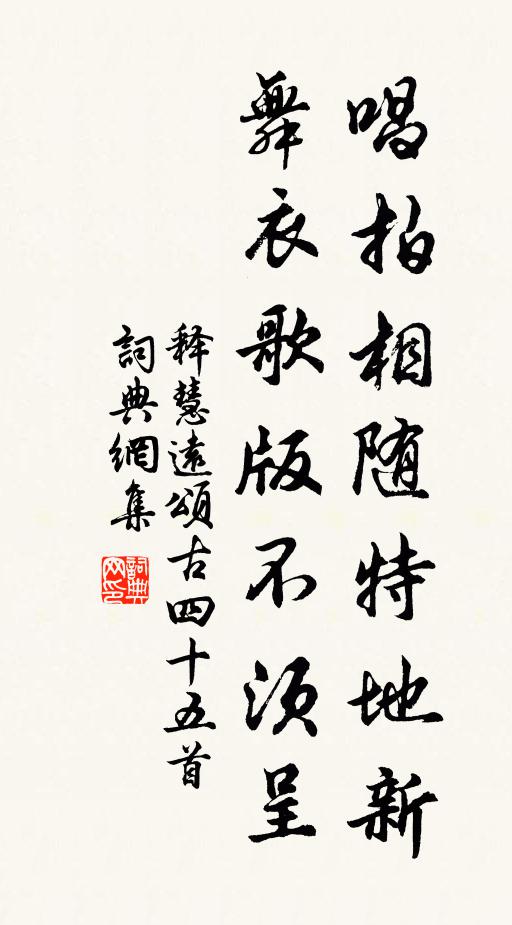 唱拍相随特地新
舞衣歌版不须呈
释慧遠頌古四十五首
詞典網集
詞典网印